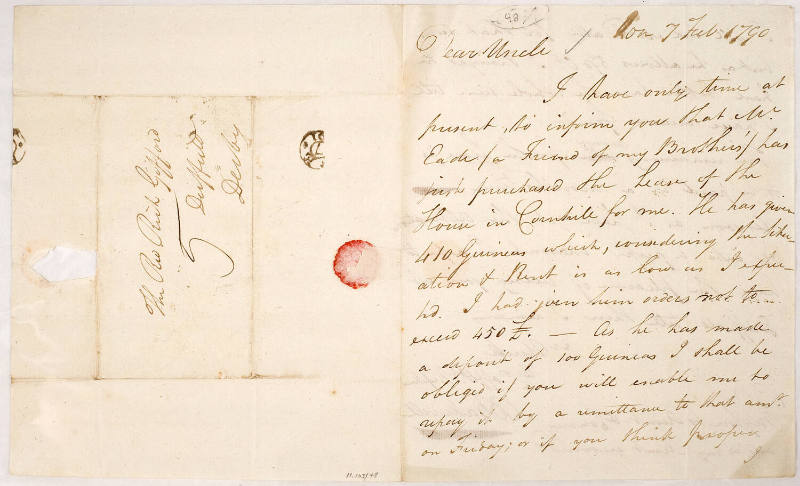 The Rev Rich Gifford
Duffield
Derby
Lon 7 Feb 1790
Dear Uncle
I have only time at
present, to inform you that Mr
Eade (a Friend of my Brother's) has
just purchased the Lease of the
House in Cornhill for me. He has given
410 Guineas which, considering the Situ-
ation & Rent is as low as I expec-
ted. I had given him orders not to
exceed 450 £. — As he has made
a deposit of 100 Guineas I shall be
obliged if you will enable me to
repay it by a remittance to that amt.
on Friday; or if you think proper